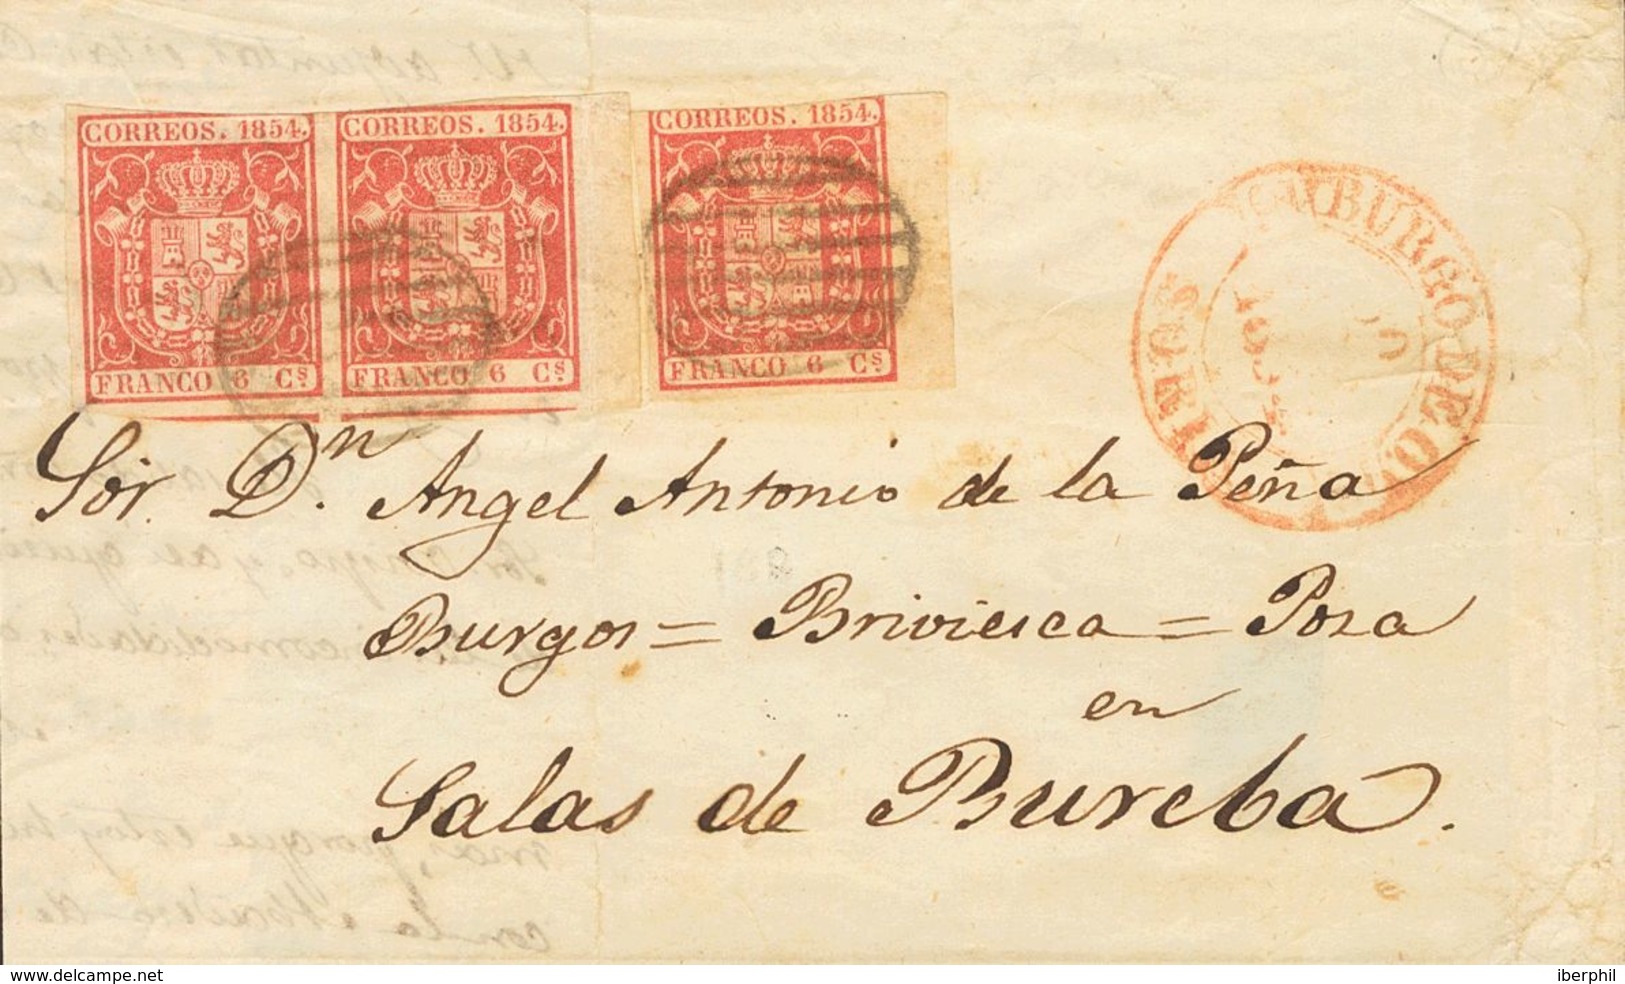 CORREOS. 1854.
CORREOS. 1854.
CORREOS. 1854.
FRANCO 6 Cs
FRANCO 6 Cs
FRANCO 6 Cs
BURGO DE O
Sór. Dn. Angel Antonio de la Peña
Burgos = Briviesca = Poza
en
Salas de Bureba.
www.delcampe.net
iberphil